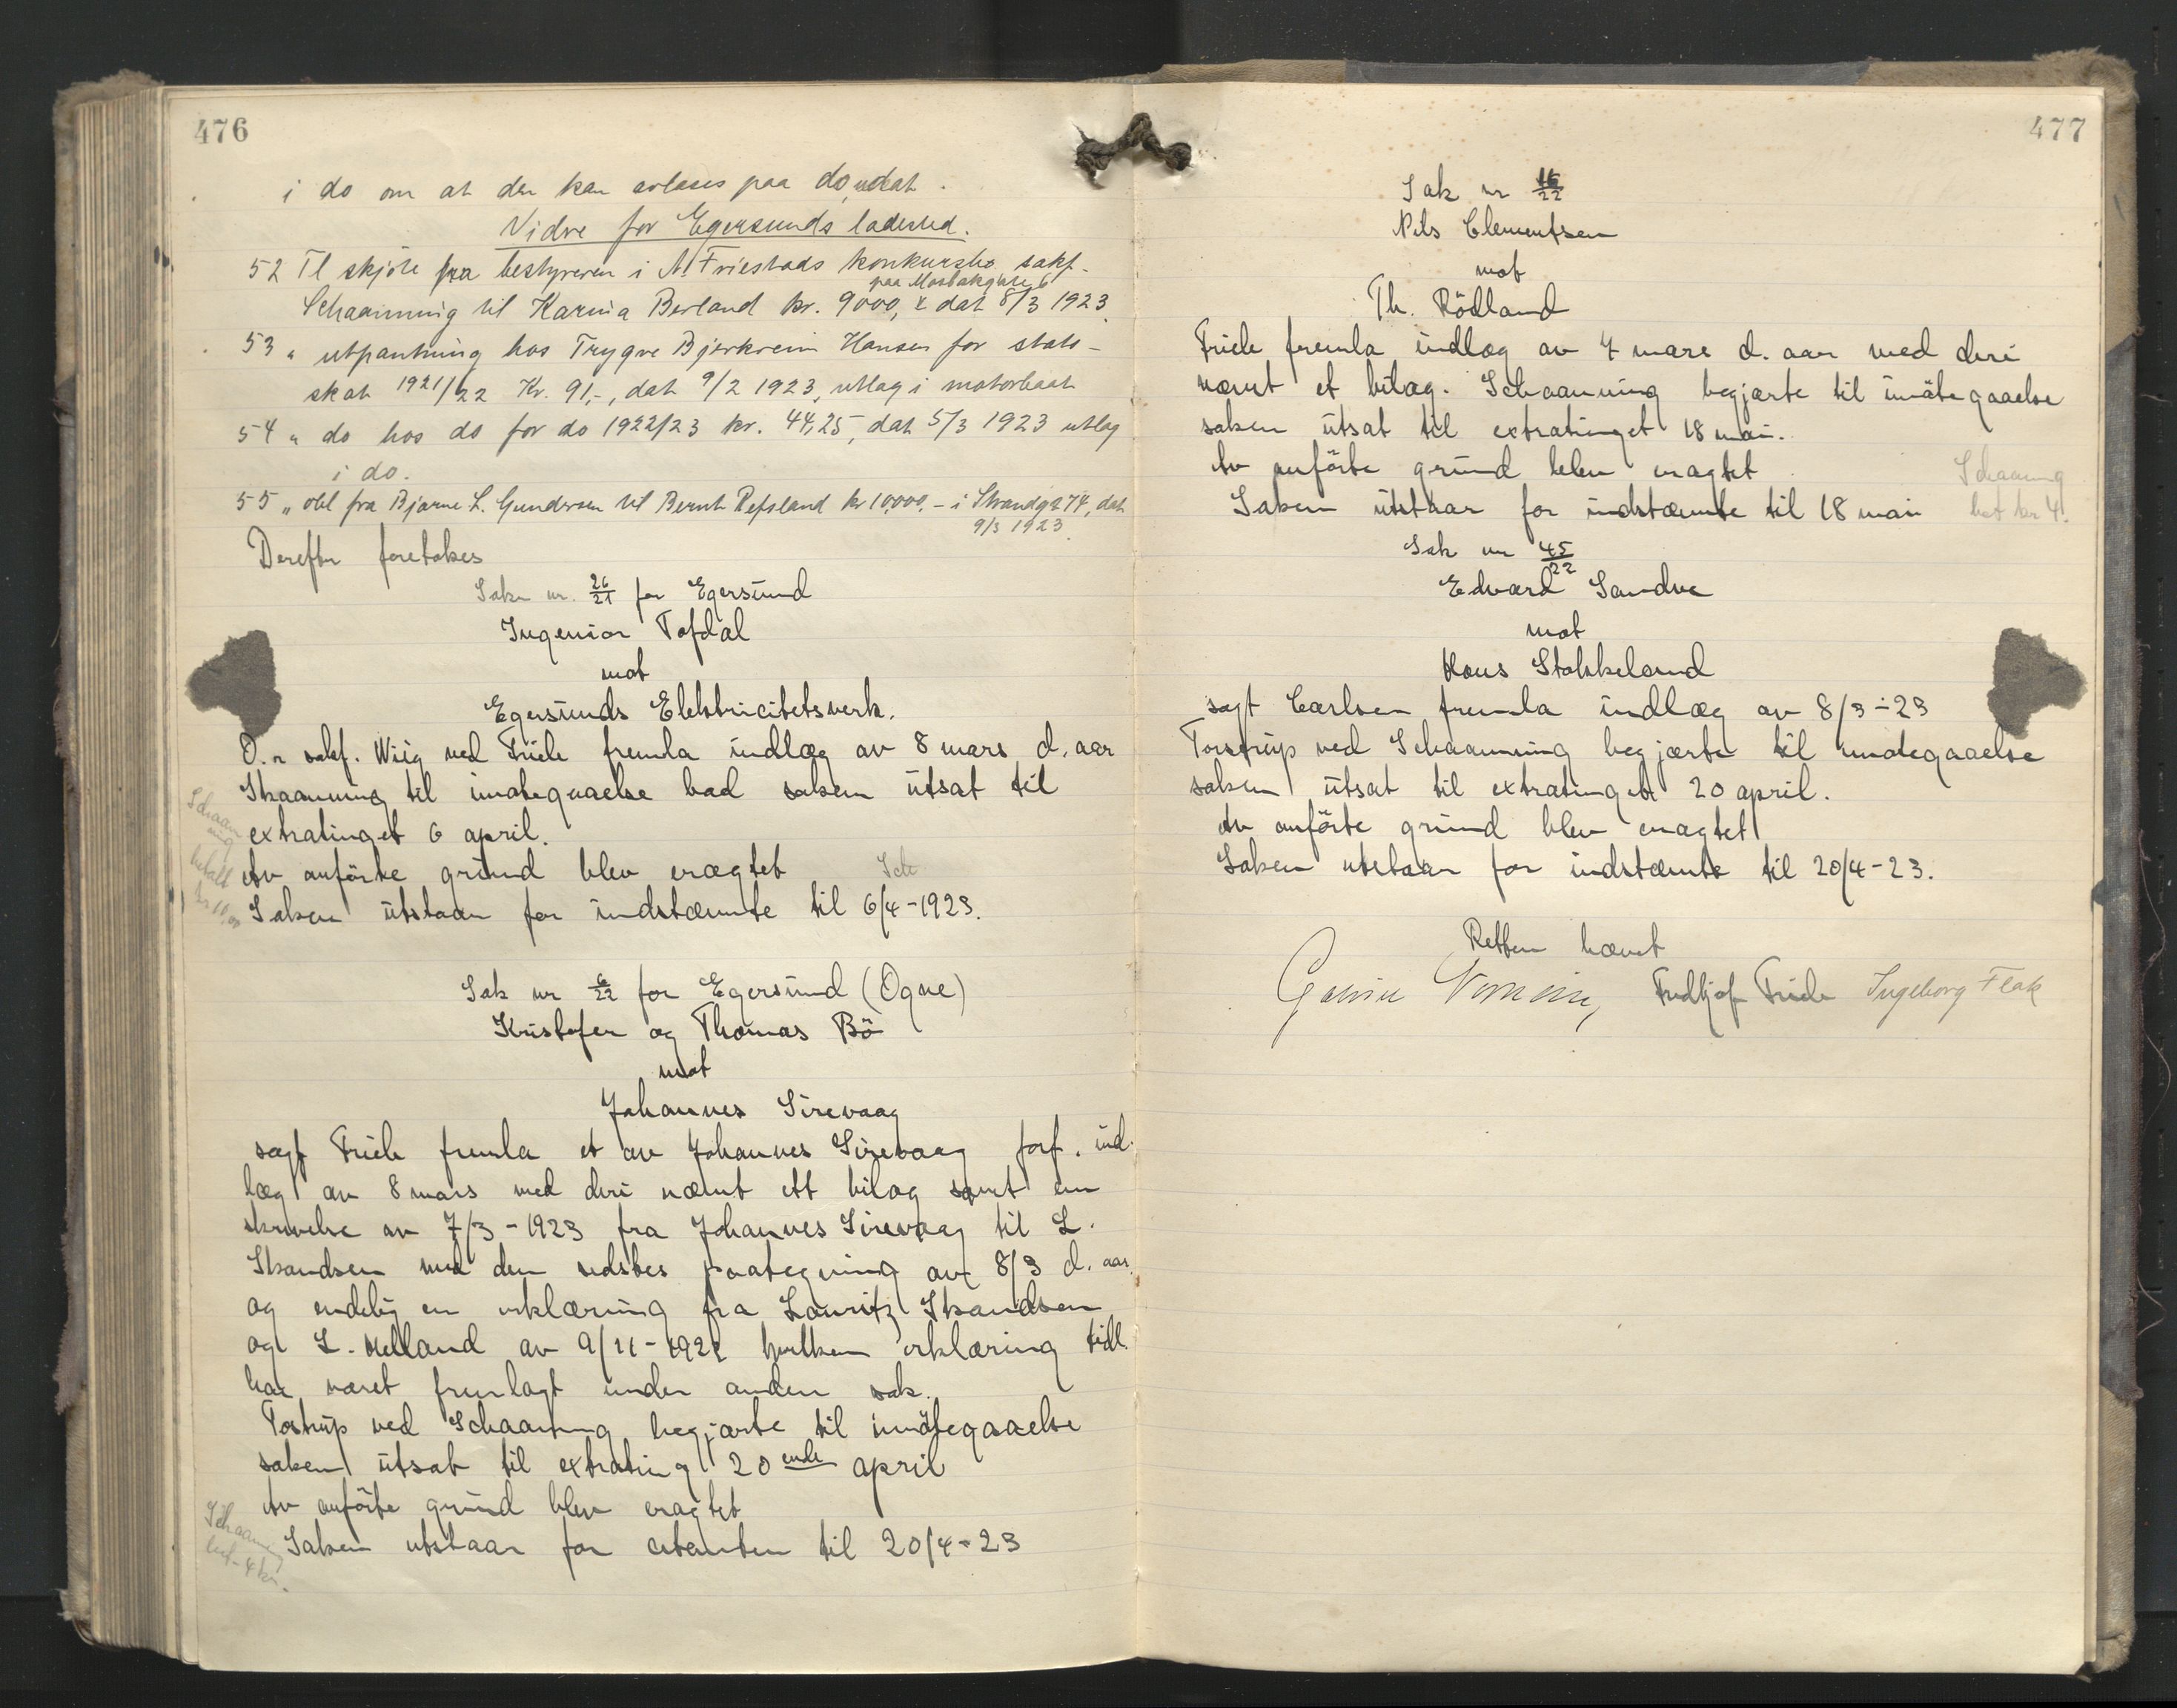 476
i do om at den kan avlæses paa do, udat.
Vidre for Egersunds ladested.
52 Tl skjøte fra bestyreren i A. Friestads konkursbo sakf.
paa Mosbækgate 6
Schaanning til Karina Berland kr. 9000, dat 8/3 1923.
53 " utpantning hos Trygve Bjerkreim Hansen for stats-
skat 1921/22 Kr. 91,-, dat 9/2 1923, utlag i motorbaat
54 " do hos do for do 1922/23 kr. 44,25, dat 5/3 1923 utlag
i do.
55 " obl fra Bjarne L. Gundersen til Bernt Refsland kr 10,000.- i Strandgt 74, dat
9/3 1923.
Derefter foretokes
Sak nr. 26/21 for Egersund
Ingeniør Tofdal
mot
Egersunds Elektricitetsverk.
O.r. sakf. Wiig ved Friele fremla indlæg av 8 mars d. aar
Skaanning til imøtegaaelse bad saken utsat til
extratinget 6 april.
Av anførte grund blev eragtet
Saken utstaar for indstævnte til 6/4-1923.
Schaanning
betalt
Sch
Sak nr 6/22 for Egersund (Ogne)
Kristofer og Thomas Bö
mot
Johannes Sirevaag
sagf Friele fremla et av Johannes Sirevaag forf. ind
læg av 8 mars med deri nævnt ett bilag samt en
skrivelse av 7/3-1923 fra Johannes Sirevaag til L.
Skandsen med den sidstes paategning av 8/3 d. aar
og endelig en erklæring fra Lauritz Skandsen
og L. Melland av 9/11-1922 hvilken erklæring tidl.
har været fremlagt under anden sak.
Tostrup ved Schaanning begjærte til imøtegaaelse
saken utsat til extrating 20 ende april
Av anførte grund blev eragtet
Saken utstaar for citanten til 20/4-23
Schaanning
bet- 4 kr.
477
Sak nr 16/22
Nils Clementsen
mot
Th. Rödland
Friele fremla indlæg av 7 mars d. aar med deri
nævnt et bilag. Schaanning begjærte til imøtegaaelse
saken utsat til extratinget 18 mai.
Av anførte grund blev eragtet
Saken utstaar for indstævnte til 18 mai
Schaaning
bet kr 4.
Sak nr 45/22
Edvard Sandve
mot
Hans Stokkeland
sagf Carlsen fremla indlæg av 8/3-23
Torstrup ved Schaanning begjærte til imøtegaaelse
saken utsat til extratinget 20 april.
Av anførte grund blev eragtet
Saken utstaar for indstævnte til 20/4-23.
Retten hævet
Fredtjof Friele Ingeborg Fleak